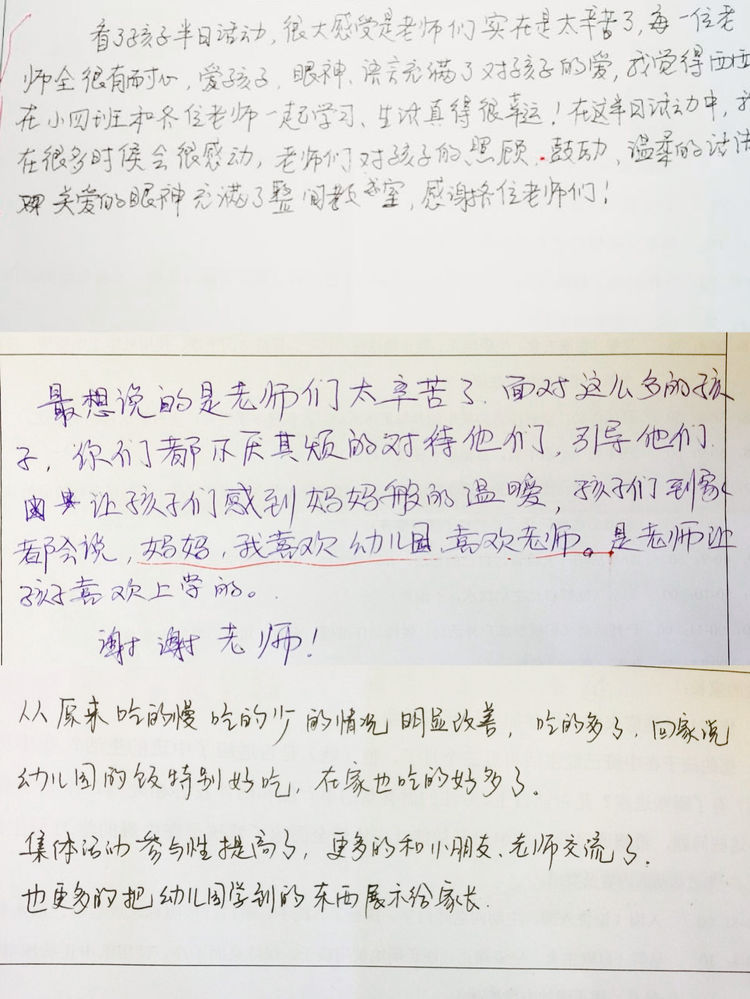 看了孩子半日活动，很大感受是老师们实在是太辛苦了，每一位老
师全很有耐心，爱孩子，眼神、语言充满了对孩子的爱，我觉得西西
在小四班和各位老师一起学习、生活真得很幸运！在这半日活动中，我
在很多时候会很感动，老师们对孩子的照顾、鼓励、温柔的话语
关爱的眼神充满了整间教室，感谢各位老师们！
最想说的是老师们太辛苦了．面对这么多的孩
子，你们都不厌其烦的对待他们，引导他们．
让孩子们感到妈妈般的温暖，孩子们到家
都会说，妈妈，我喜欢幼儿园，喜欢老师。是老师让
孩子喜欢上学的。
谢谢老师！
从原来吃的慢吃的少的情况明显改善，吃的多了．回家说
幼儿园的饭特别好吃，在家也吃的好多了．
集体活动参与性提高了，更多的和小朋友、老师交流了．
也更多的把幼儿园学到的东西展示给家长．